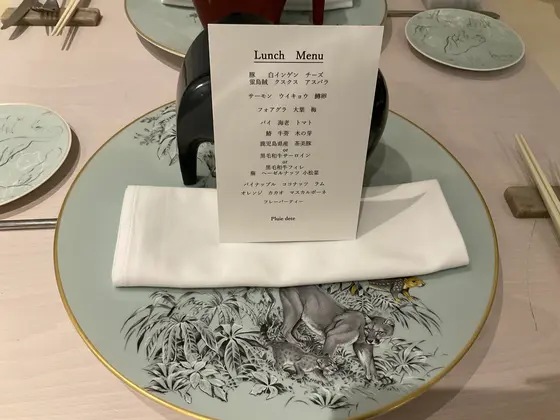 Lunch Menu
豚 白インゲン チーズ
蛍烏賊 クスクス アスパラ
サーモン ウイキョウ 麹卵
フォアグラ 大葉 梅
パイ 海老 トマト
鰆 牛蒡 木の芽
鹿児島県産 茶美豚
or
黒毛和牛サーロイン
or
黒毛和牛フィレ
ヘーゼルナッツ 小松菜
パイナップル ココナッツ ラム
オレンジ カカオ マスカルポーネ
フレーバーティー